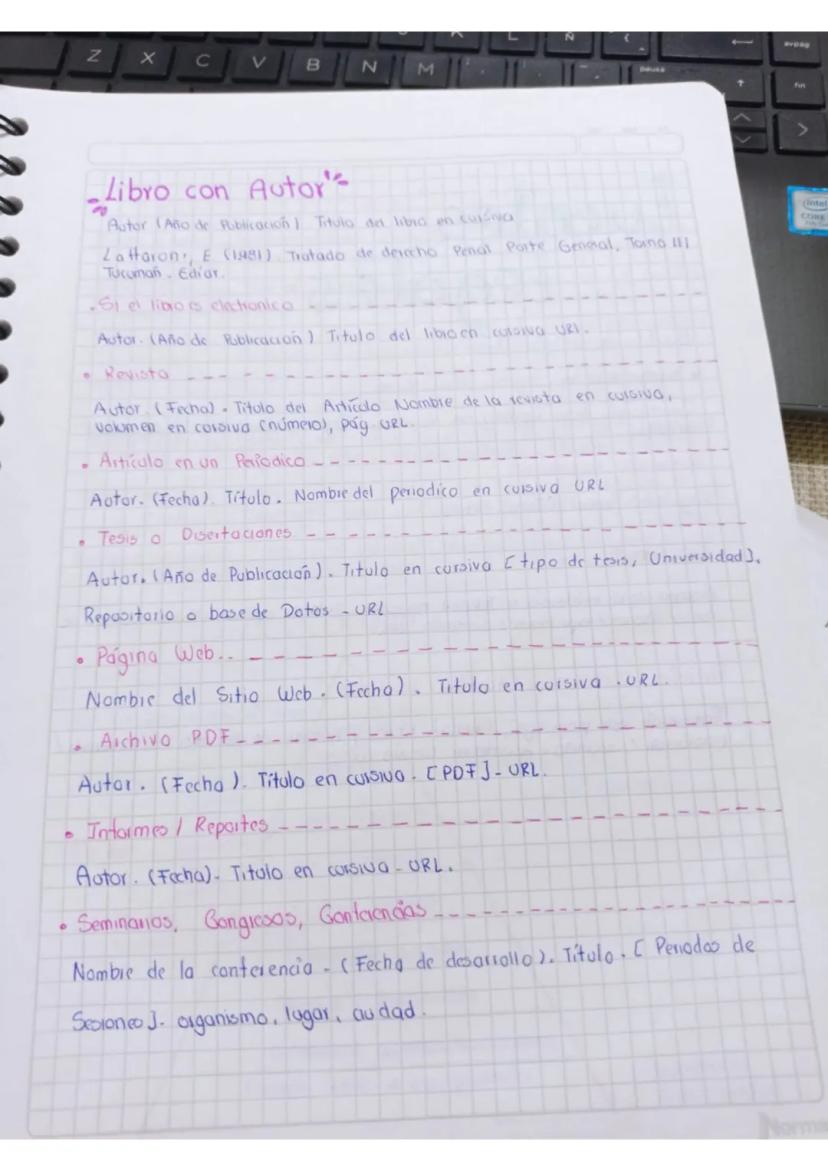 Z X C V B N M
L Ñ
pausa
avpág
fin
intel
CORE
Libro con Autor
Autor (Año de Publicación) Titulo del libro en cursiva
Zaffaroni, E (1981) Tratado de derecho Penal Parte General, Tomo III
Tucuman. Ediar.
• Si el libro es electronico
Autor. (Año de Publicación) Titulo del libro en cursiva URL.
• Revista
Autor. (Fecha). Título del Artículo Nombre de la revista en cursiva,
volumen en cursiva (número), pág URL.
• Artículo en un Periodico
Autor. (Fecha). Título. Nombre del periodico en cursiva URL
• Tesis o Disertaciones
Autor. (Año de Publicación). Titulo en cursiva [tipo de tesis, Universidad].
Repositorio o base de Datos - URL
• Página Web..
Nombre del Sitio Web. (Fecha). Titulo en cursiva . URL.
• Archivo PDF
Autor. (Fecha). Título en cursiva. [PDF] - URL.
• Informes / Reportes
Autor. (Fecha). Titulo en cursiva - URL.
• Seminarios, Congresos, Conferencias
Nombre de la conferencia - (Fecha de desarrollo). Título. [ Periodos de
Sesiones]. organismo, lugar, ciudad.
Norma